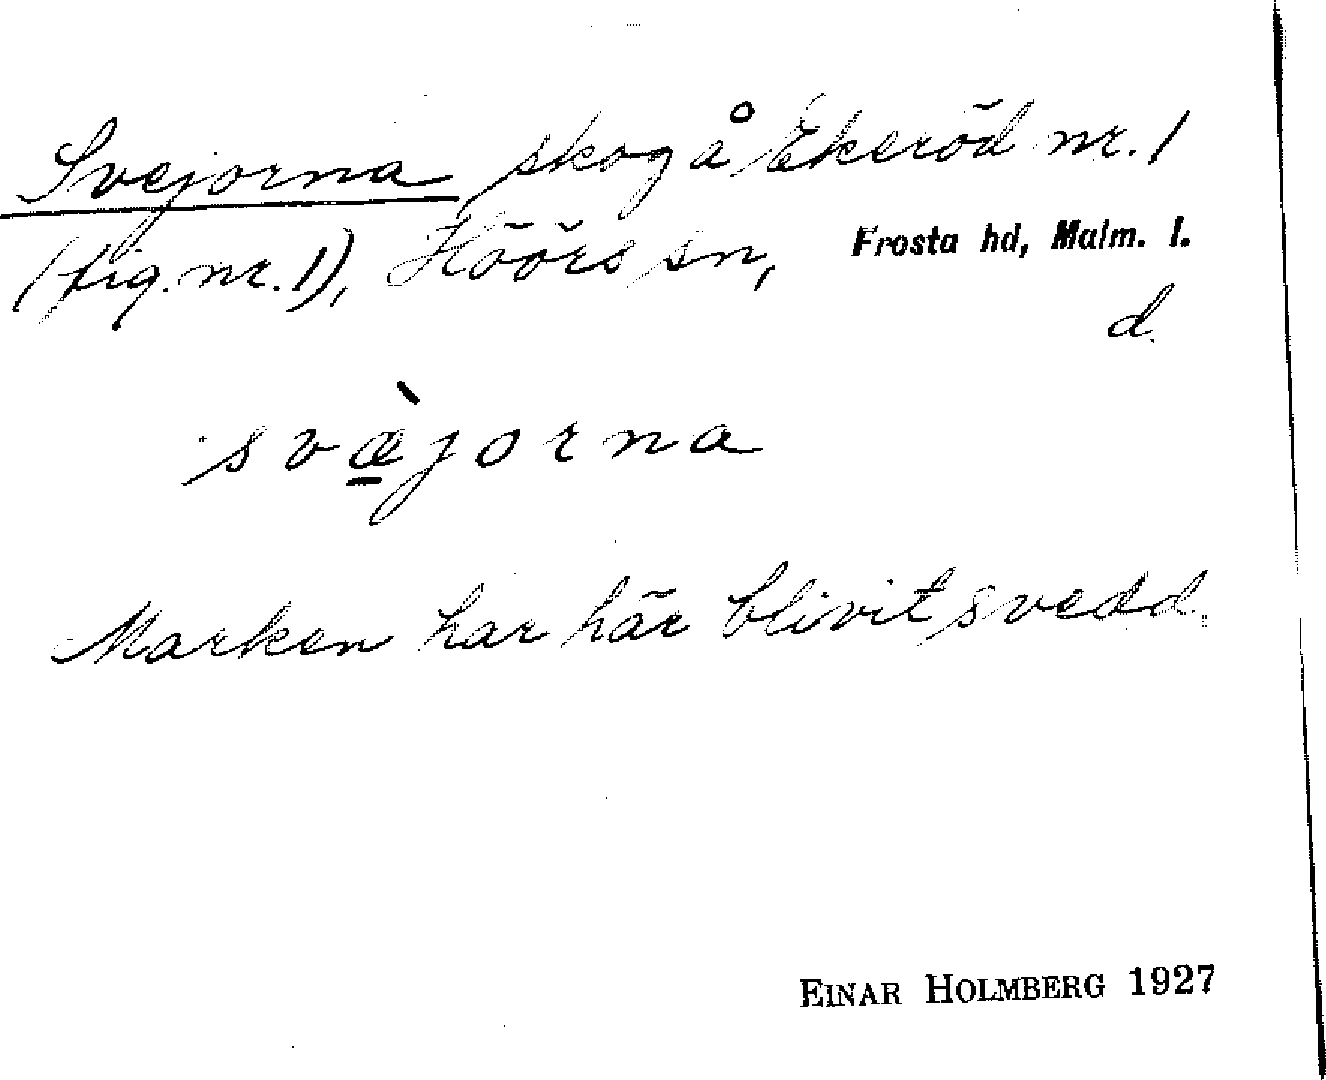 Svejorna skog å Ekeröd nr. 1
(fig. nr. 1), Höörs sn, Frosta hd, Malm. l.
d.
svæ̱̀jorna
Marken har här blivit svedd.
EINAR HOLMBERG 1927